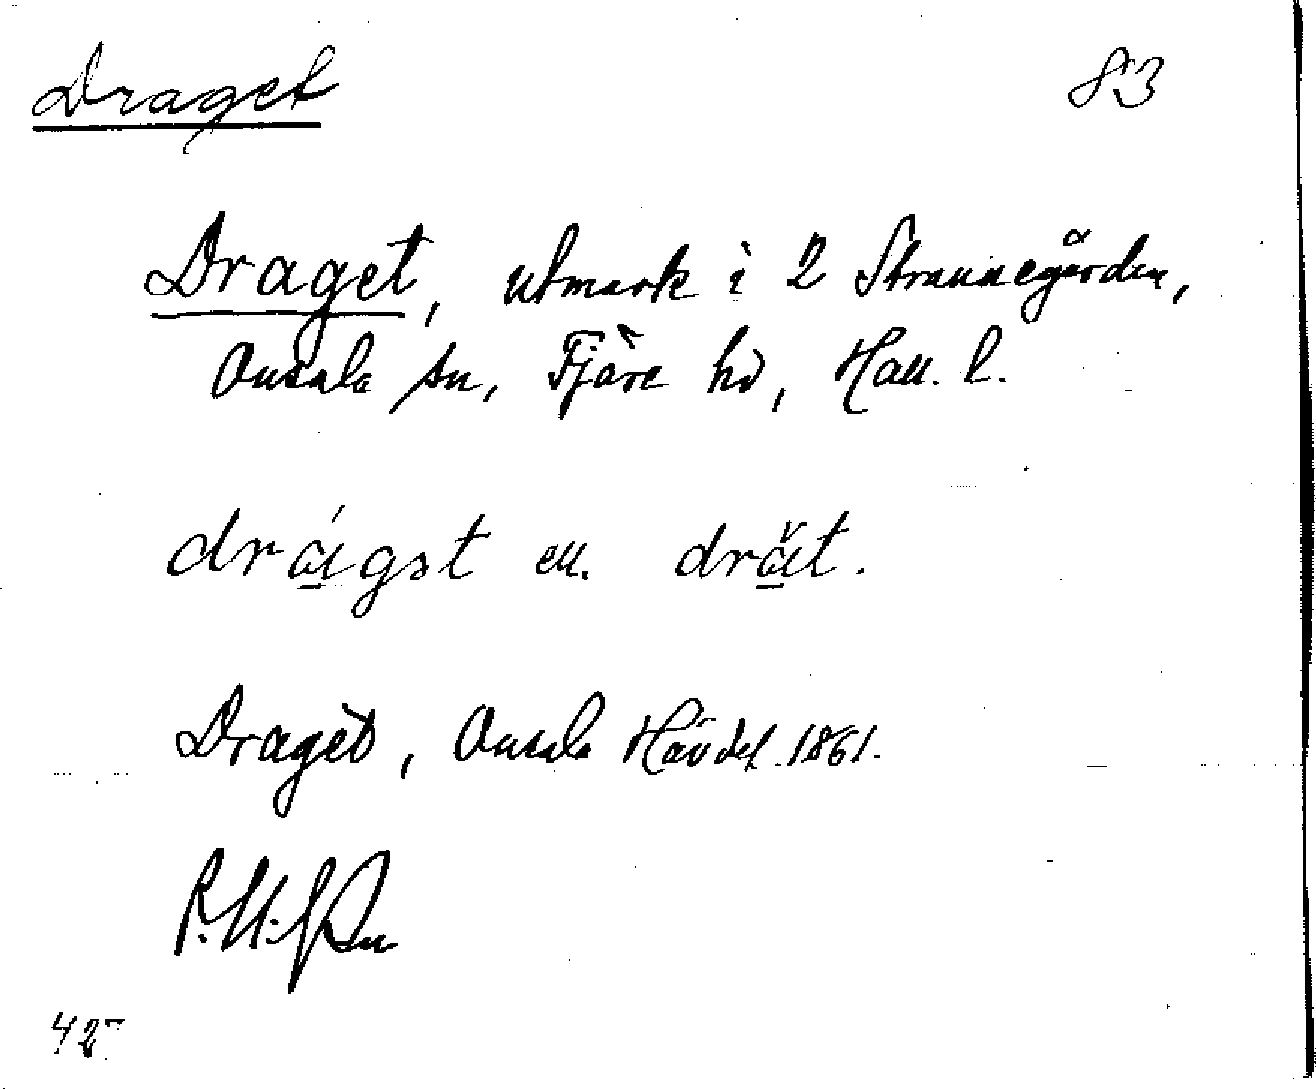 Draget 83
Draget, utmark i 2 Strannegården,
Onsala sn, Fjäre hd, Hall. l.
drágst ell. drat.
Draget, Onsala 1861.
42